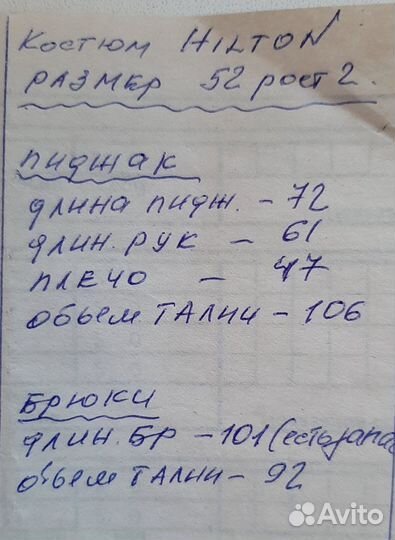 Костюм HILTON
РАЗМЕР 52 рост 2.
ПИДЖАК
длина пидж. - 72
длин. РУК - 61
ПЛЕЧО - 47
обьем ТАЛИИ - 106
БРЮКИ
длин. БР - 101 (есть запас
обьем ТАЛИИ - 92
Avito